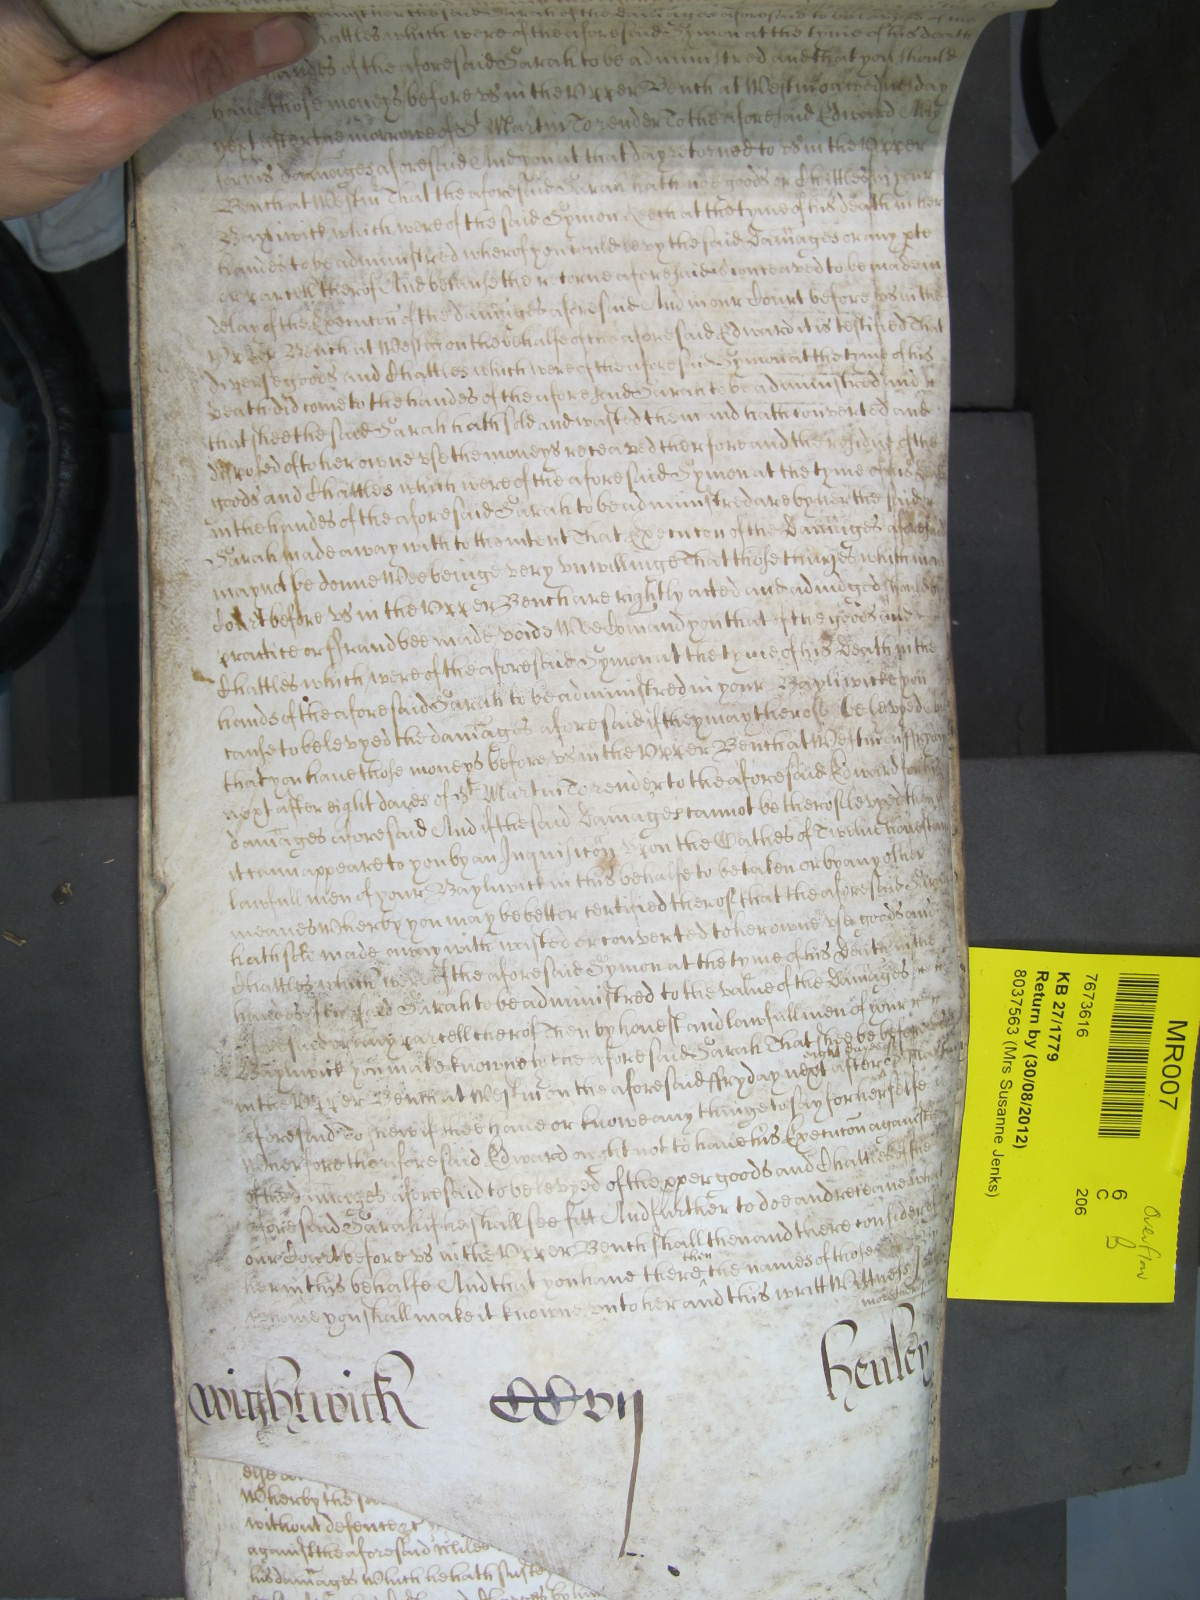 Chattles which were of the aforesaid Symon at the tyme of his death
handes of the aforesaid Sarah to be administred and that you should
have those moneys before us in the Upper Bench at Westm on wednesday
next after the morrowe of St Martin To render To the aforesaid Edward
damages aforesaid And you at that day retorned to us in the Upper
Bench at Westm That the aforesaid Sarah hath not goods or Chattles in your
Baylwick which were of the said Symon at the tyme of his death in her
handes to be administred wherof you could levy the said Damages or any pte
or parcell therof And because the retorne aforesaid is conceaved to be made in
delay of the Execucon of the damages aforesaid And in our Court before us in the
Upper Bench at Westm on the behalfe of the aforesaid Edward it is testified That
diverse goods and Chattles which were of the aforesaid Symon at the tyme of his
death did come to the handes of the aforesaid Sarah to be administred and
that shee the said Sarah hath sold and wasted them and hath converted and
disposed of to her owne use the moneys receaved therfore and the residue of the
goods and Chattles which were of the aforesaid Symon at the tyme of his
in the handes of the aforesaid Sarah to be administred are by her the said
Sarah made away with to the intent That Execucon of the Damages aforesaid
may not be donne Wee beinge very unwillinge That those thinges which in our
Court before us in the Upper Bench are rightly acted and adiudged should by
practice or ffraud bee made voide Wee Comand you that of the goods and
Chattles which were of the aforesaid Symon at the tyme of his Death in the
hands of the aforesaid Sarah to be administred in your Bayliwicke you
cause to be levyed the damages aforesaid if they may therof be levyed
that you have those moneys before us in the Upper Bench at Westm on ffryday
next after eight dayes of St Martin To render to the aforesaid Edward for his
damages aforesaid And if the said Damages cannot be therof levyed then if
it cann appeare to you by an Inquisicon upon the Oathes of Twelve honest and
lawfull men of your Bayliwick in this behalfe to be taken or by any other
meanes Wherby you may be better certified therof that the aforesaid Sarah
hath sold made away with wasted or converted to her owne use goods and
Chattles which were of the aforesaid Symon at the tyme of his Death in the
handes of the aforesaid Sarah to be administred to the value of the Damages
aforesaid or any parcell therof Then by honest and lawfull men of your
Baylwick you make knowne to the aforesaid Sarah That shee be before
in the Upper Bench at Westm on the aforesaid ffryday next after eight dayes
aforesaid To shew if shee have or knowe any thinge to say for her selfe
Wherfore the aforesaid Edward ought not to have his Execucon against
of the damages aforesaid to be levyed of the pper goods and Chattles of the
aforesaid Sarah if he shall see fitt And further to doe and receave what
our Court before us in the Upper Bench shall then and there consider of
her in this behalfe And that you have there then the names of those
whome you shall make it knowne unto her and this writt Wittness
Wightwick CCvij Henley
Wherby the
without defence
against the aforesaid
his damages Which he hath
MR007
7673616
KB 27/1779
Return by (30/08/2012)
8037563 (Mrs Susanne Jenks)
6
C
206
Overflow